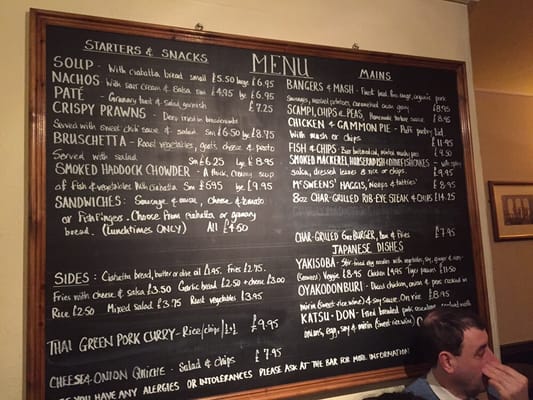 STARTERS & SNACKS
SOUP - With ciabatta bread small £5.50 large £6.95
NACHOS with sour cream & salsa Sm £4.95 lge £6.95
PATÉ - Granary toast & salad garnish £7.25
CRISPY PRAWNS - Deep fried in breadcrumbs
Served with sweet chili sauce & salad Sm £6.50 lge £8.75
BRUSCHETTA - Roast vegetables, goats cheese & pesto
Served with salad Sm £6.25 lge £8.95
SMOKED HADDOCK CHOWDER - A thick, creamy soup
of Fish & vegetables With ciabatta Sm £5.95 lge £9.95
SANDWICHES: Sausage & onion, cheese & tomato
or Fishfingers. Choose From ciabatta or granary
bread. (Lunchtimes ONLY) All £4.50
SIDES: Ciabatta bread, butter or olive oil £1.95. Fries £2.75.
Fries with cheese & salsa £3.50 Garlic bread £2.50 + cheese £3.00
Rice £2.50 Mixed salad £3.75 Roast vegetables £3.95
THAI GREEN PORK CURRY - Rice/chips/½:½ £9.95
CHEESE & ONION QUICHE - Salad & chips £7.95
IF YOU HAVE ANY ALLERGIES OR INTOLERANCES PLEASE ASK AT THE BAR FOR MORE INFORMATION!
MENU
MAINS
BANGERS & MASH - Finest beef, free range, organic pork
Sausages, mashed potatoes, caramelised onion gravy £8.95
SCAMPI, CHIPS & PEAS, Homemade tartare sauce £8.95
CHICKEN & GAMMON PIE - Puff pastry lid
With mash or chips £11.95
FISH & CHIPS - Beer battered cod, minted mushy peas £9.50
SMOKED MACKEREL, HORSERADISH & FISHCAKES - with spicy
salsa, dressed leaves & rice or chips. £9.95
McSWEENS' HAGGIS, Neeps & tatties £8.95
8oz CHAR-GRILLED RIB-EYE STEAK & CHIPS £14.25
CHAR-GRILLED 6oz BURGER, bun & fries £7.95
JAPANESE DISHES
YAKISOBA - Stir-fried egg noodles with vegetables, soy, ginger &
Veggie £8.95 Chicken £9.95 Tiger prawns £11.50
OYAKODONBURI - Diced chicken, onion & peas cooked in
mirin (sweet rice wine) & soy sauce. On rice £8.95
KATSU-DON - Fried breaded pork
onions, egg, soy & mirin (sweet rice wine)